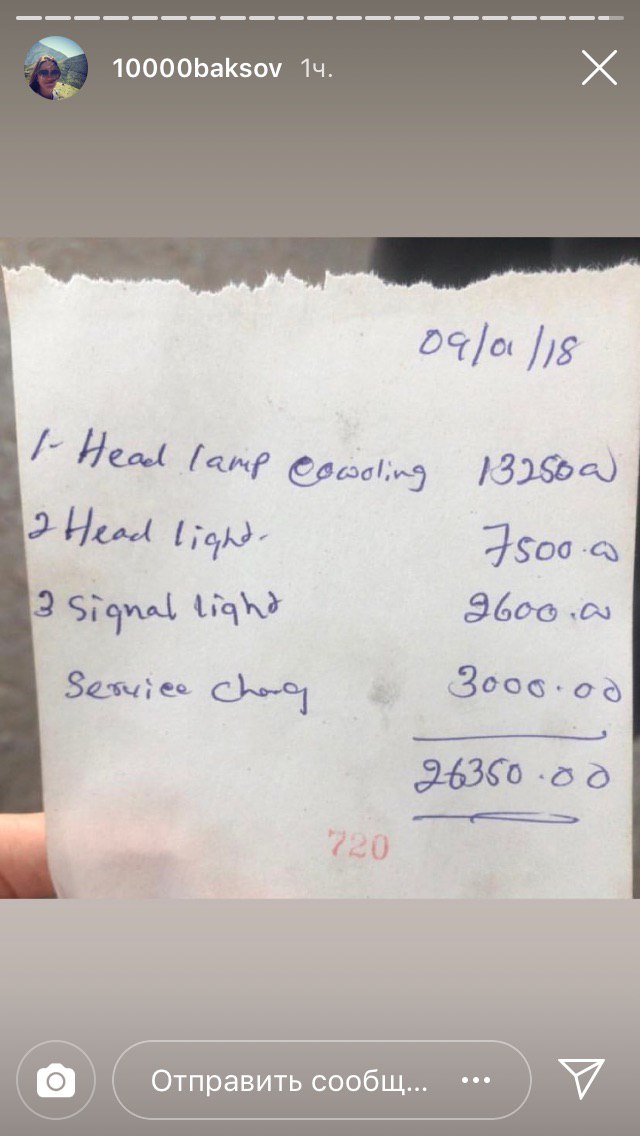 10000baksov 1ч.
09/01/18
1- Head lamp cowoling 13250.00
2 Head light. 7500.00
3 Signal light 2600.00
Service Charg 3000.00
26350.00
720
Отправить сообщ...